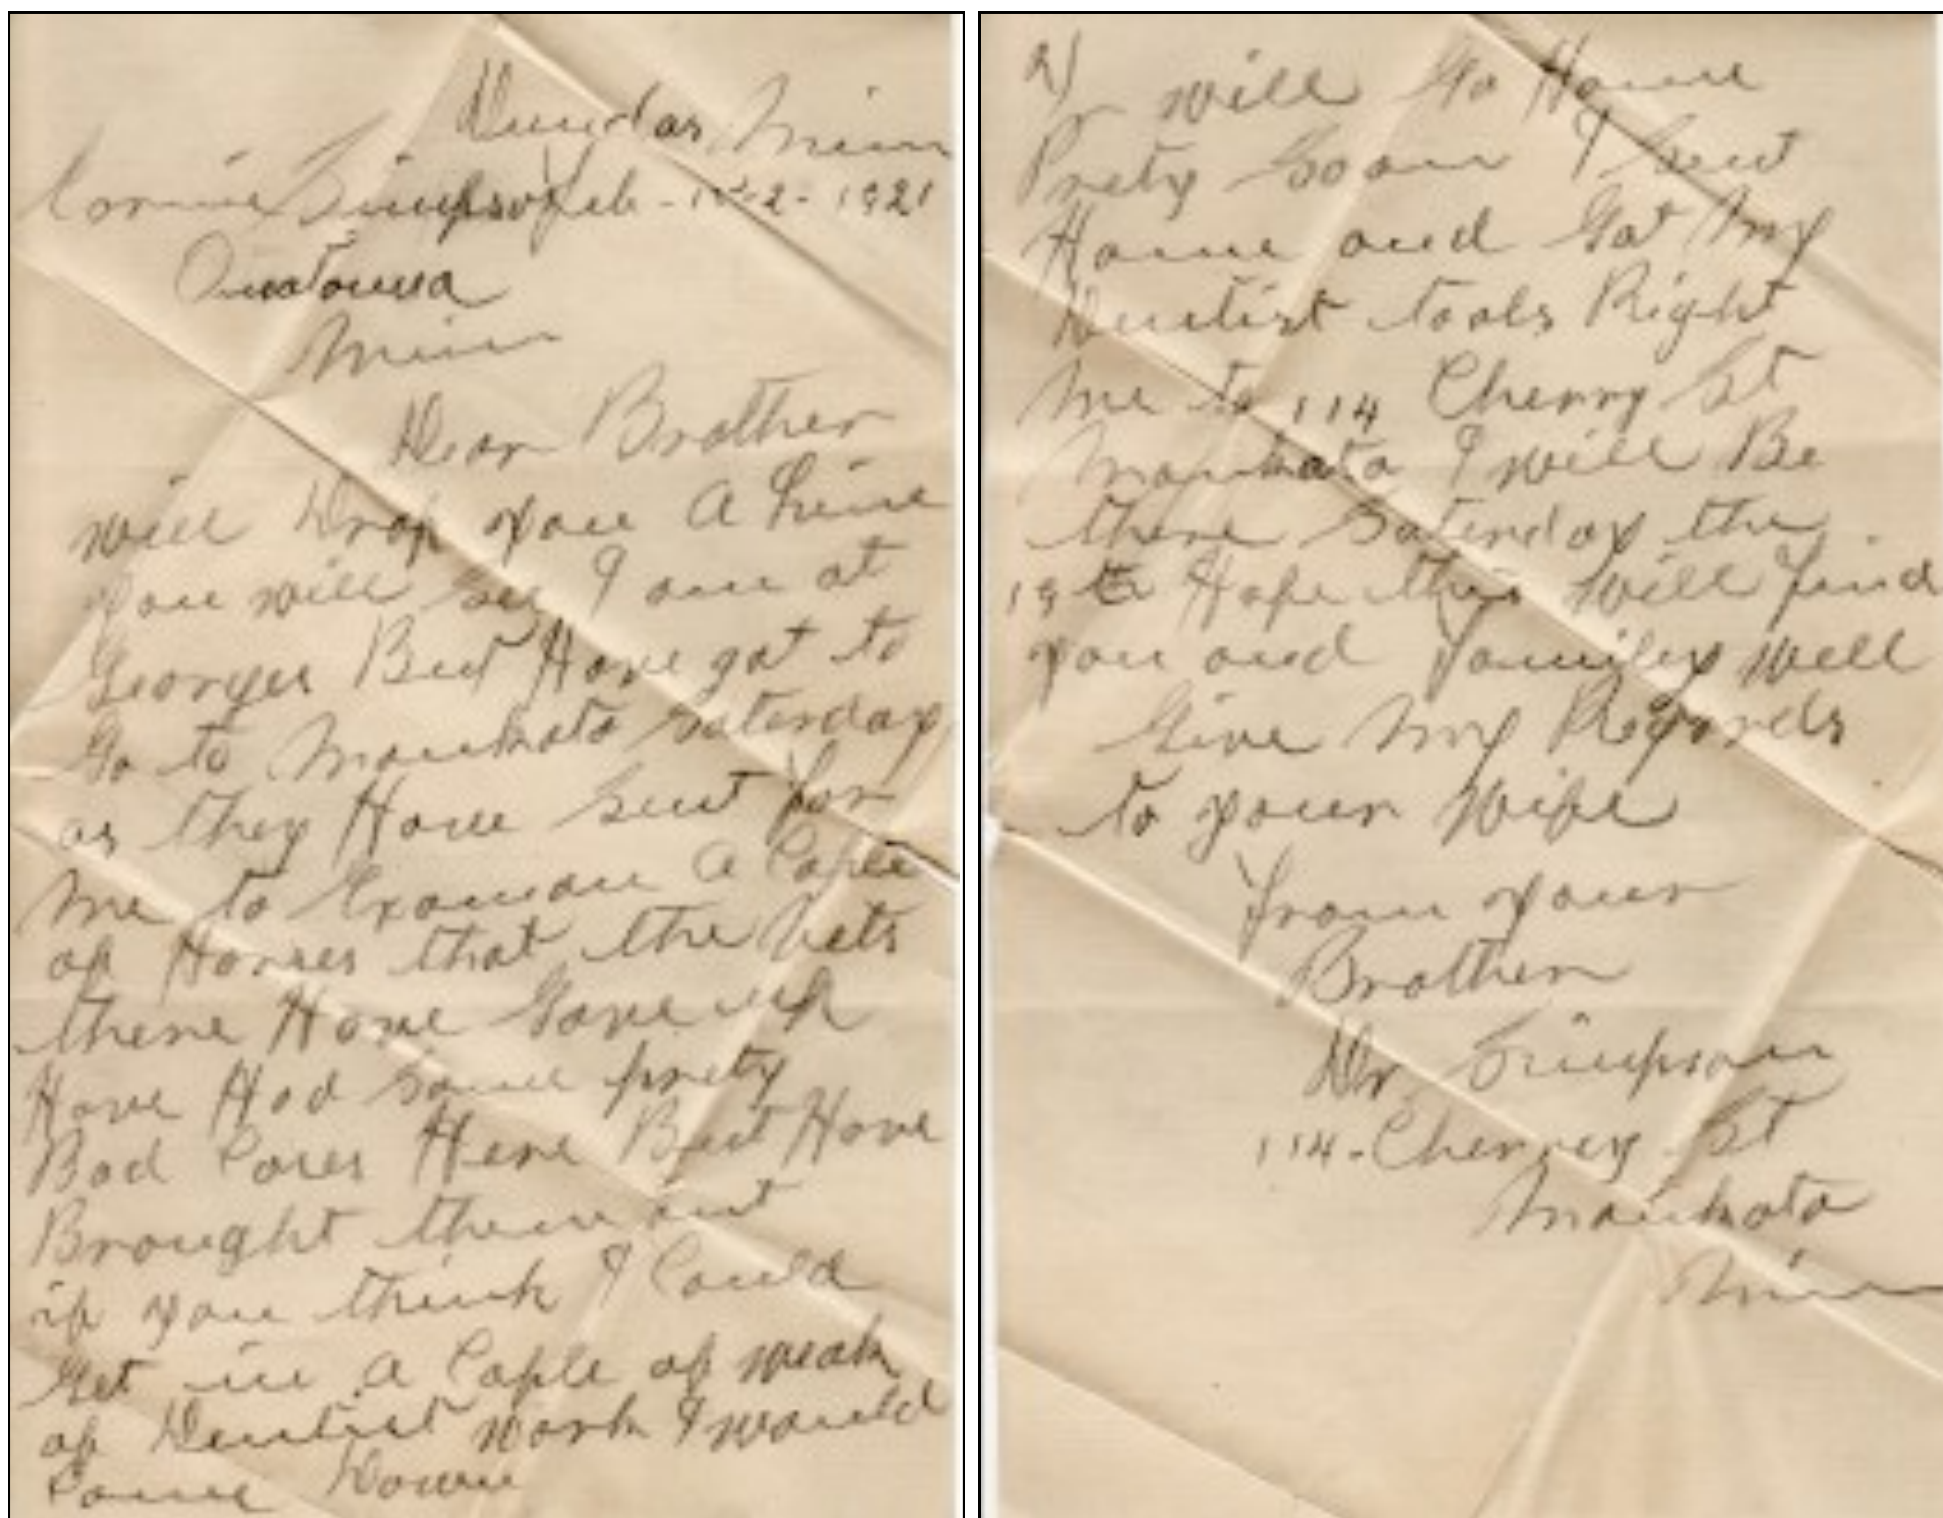 Dundas Minn
Simpson Feb - 1921
Owatonna
Minn
Dear Brother
will Drop you A Line
you will see I am at
Georges But Have got to
Go to Mankato Saterday
as they Have sent for
me to Examan A Cople
of Horses that the Vets
there Have Gave up
Have Had some prety
Bad Cases Here But Have
Brought them out
if you think I Could
Get in A Cople of weak
of Dentist work I would
Come Down
2)
or will Go Home
Prety Soon I sent
Home and Got My
Dentist tools Right
me to 114 Cherry St
Mankato I will Be
there Saterday the
19th Hope this will find
you and family well
Give My Regards
to your Wife
from your
Brother
Dr Simpson
114 - Cherrey St
Mankato
Minn